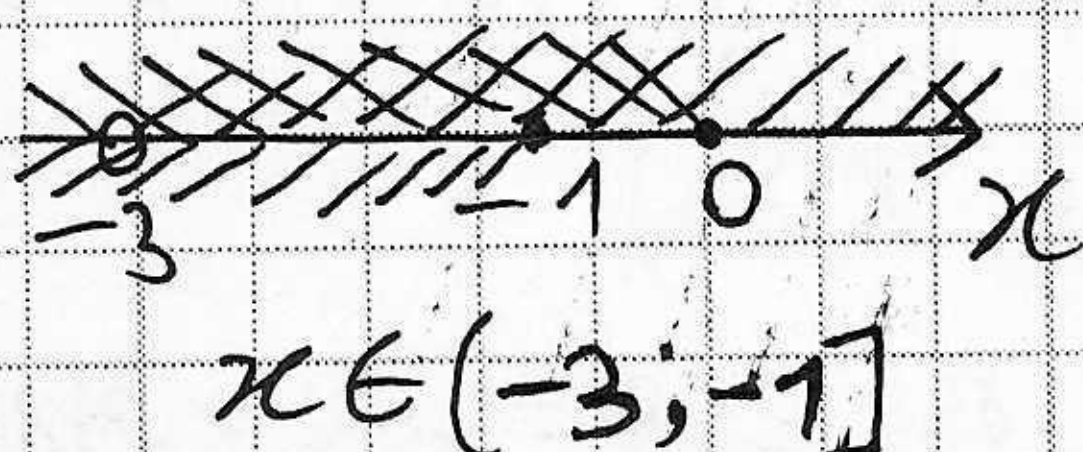 -3 -1 0 x
x ∈ (-3; -1]